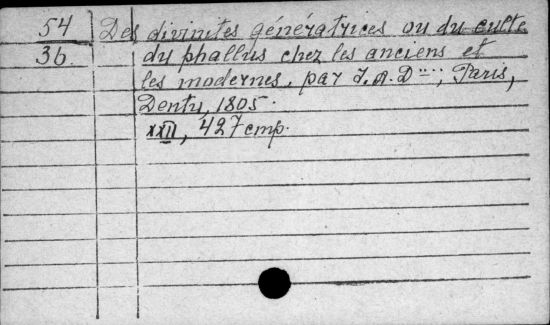 54 Des divinites génératrices ou du culte
36 du phallus chez les anciens et
les modernes, par J. A. D....., Paris,
Dentu, 1805.
XXII, 427 стр.